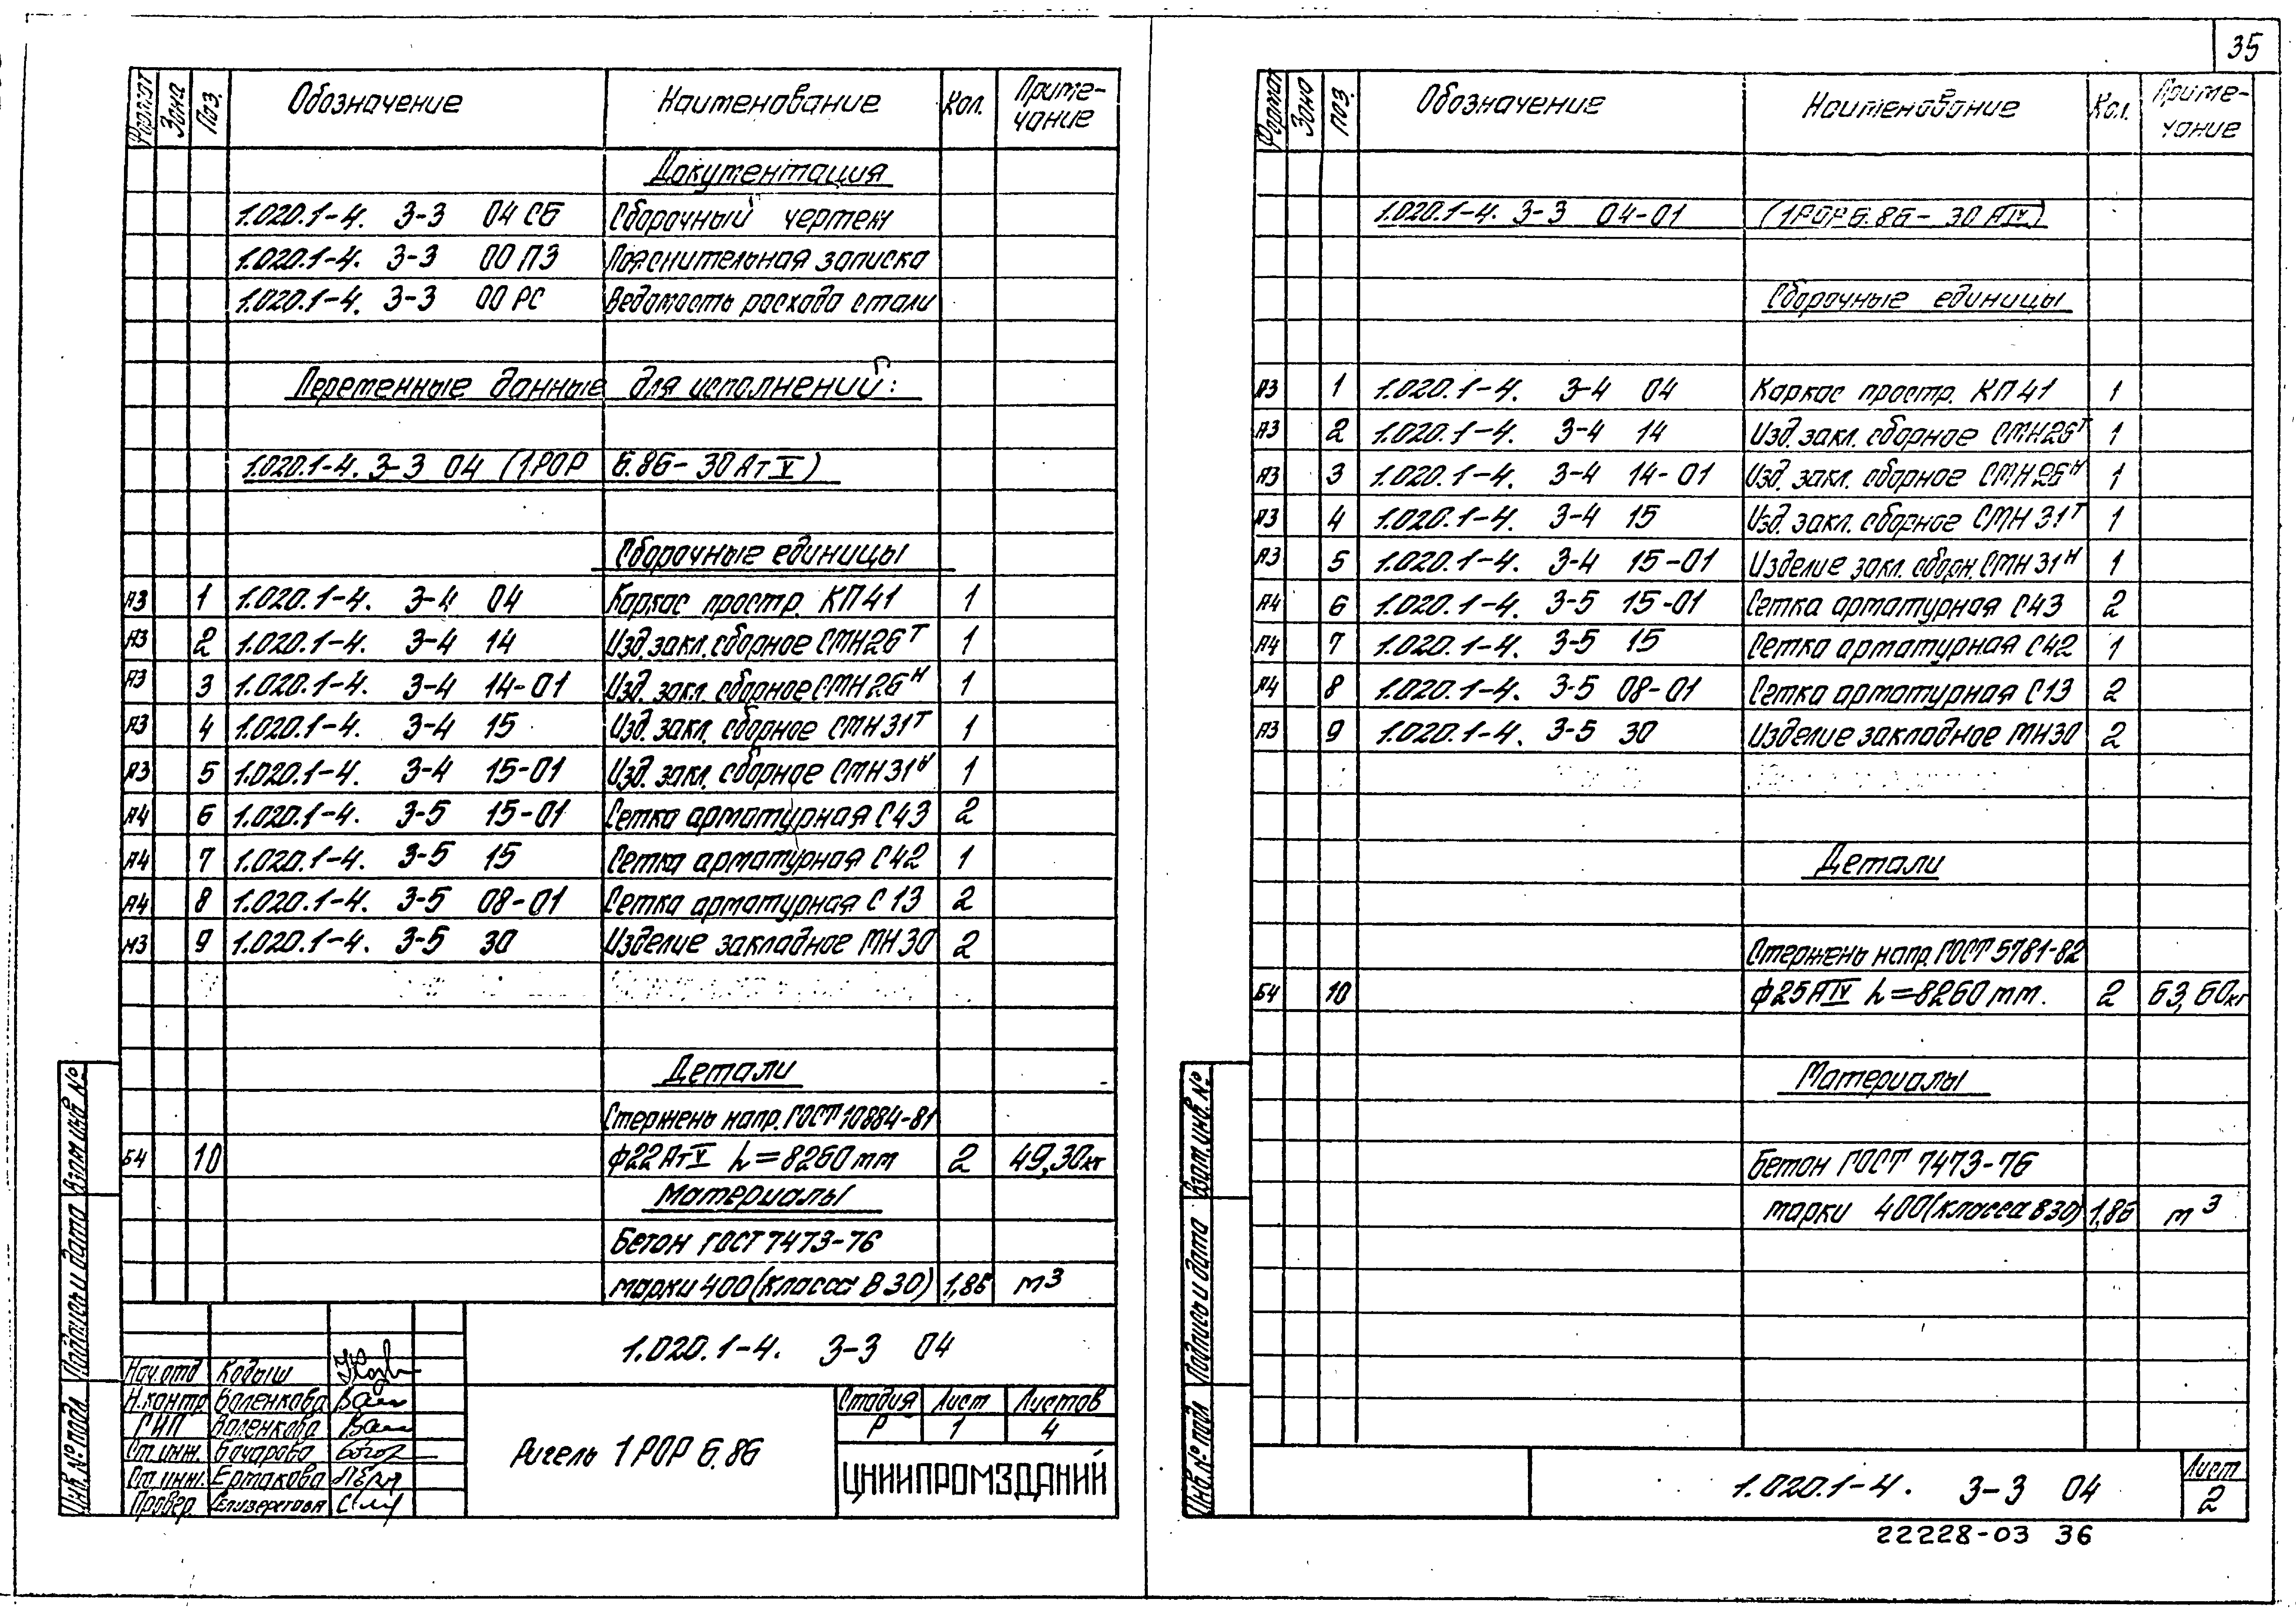 35
Формат Зона Поз. Обозначение Наименование Кол. Приме-
чание
Документация
1.020.1-4. 3-3 04 СБ Сборочный чертеж
1.020.1-4. 3-3 00 ПЗ Пояснительная записка
1.020.1-4. 3-3 00 РС Ведомость расхода стали
Переменные данные для исполнений:
1.020.1-4. 3-3 04 (1РОР 6.86-30АтV)
Сборочные единицы
А3 1 1.020.1-4. 3-4 04 Каркас простр. КП41 1
А3 2 1.020.1-4. 3-4 14 Изд. закл. сборное СМН26т 1
А3 3 1.020.1-4. 3-4 14-01 Изд. закл. сборное СМН26н 1
А3 4 1.020.1-4. 3-4 15 Изд. закл. сборное СМН31т 1
А3 5 1.020.1-4. 3-4 15-01 Изд. закл. сборное СМН31н 1
А4 6 1.020.1-4. 3-5 15-01 Сетка арматурная С43 2
А4 7 1.020.1-4. 3-5 15 Сетка арматурная С42 1
А4 8 1.020.1-4. 3-5 08-01 Сетка арматурная С13 2
А3 9 1.020.1-4. 3-5 30 Изделие закладное МН30 2
Детали
Стержень напр. ГОСТ 10884-81
Б4 10 ϕ22АтV h=8260мм 2 49,30кг
Материалы
Бетон ГОСТ 7473-76
марки 400 (класса В30) 1,86 м3
1.020.1-4. 3-3 04
Нач.отд Кодыш
Н.контр Валенкова
ГИП Валенкова
Ст.инж. Бачарова
Ст.инж. Ермакова
Провер.
Ригель 1РОР 6.86
Стадия Лист Листов
Р 1 4
ЦНИИПРОМЗДАНИЙ
Инв.№ подл Подпись и дата Взам.инв.№
Формат Зона Поз. Обозначение Наименование Кол. Приме-
чание
1.020.1-4. 3-3 04-01 (1РОР 6.86-30АIV)
Сборочные единицы
А3 1 1.020.1-4. 3-4 04 Каркас простр. КП41 1
А3 2 1.020.1-4. 3-4 14 Изд. закл. сборное СМН26т 1
А3 3 1.020.1-4. 3-4 14-01 Изд. закл. сборное СМН26н 1
А3 4 1.020.1-4. 3-4 15 Изд. закл. сборное СМН31т 1
А3 5 1.020.1-4. 3-4 15-01 Изделие закл. сборн. СМН31н 1
А4 6 1.020.1-4. 3-5 15-01 Сетка арматурная С43 2
А4 7 1.020.1-4. 3-5 15 Сетка арматурная С42 1
А4 8 1.020.1-4. 3-5 08-01 Сетка арматурная С13 2
А3 9 1.020.1-4. 3-5 30 Изделие закладное МН30 2
Детали
Стержень напр. ГОСТ 5781-82
Б4 10 ϕ25АIV h=8260мм. 2 63,60кг
Материалы
Бетон ГОСТ 7473-76
марки 400 (класса В30) 1,86 м3
1.020.1-4. 3-3 04
Лист
2
Инв.№ подл Подпись и дата Взам.инв.№
22228-03 36